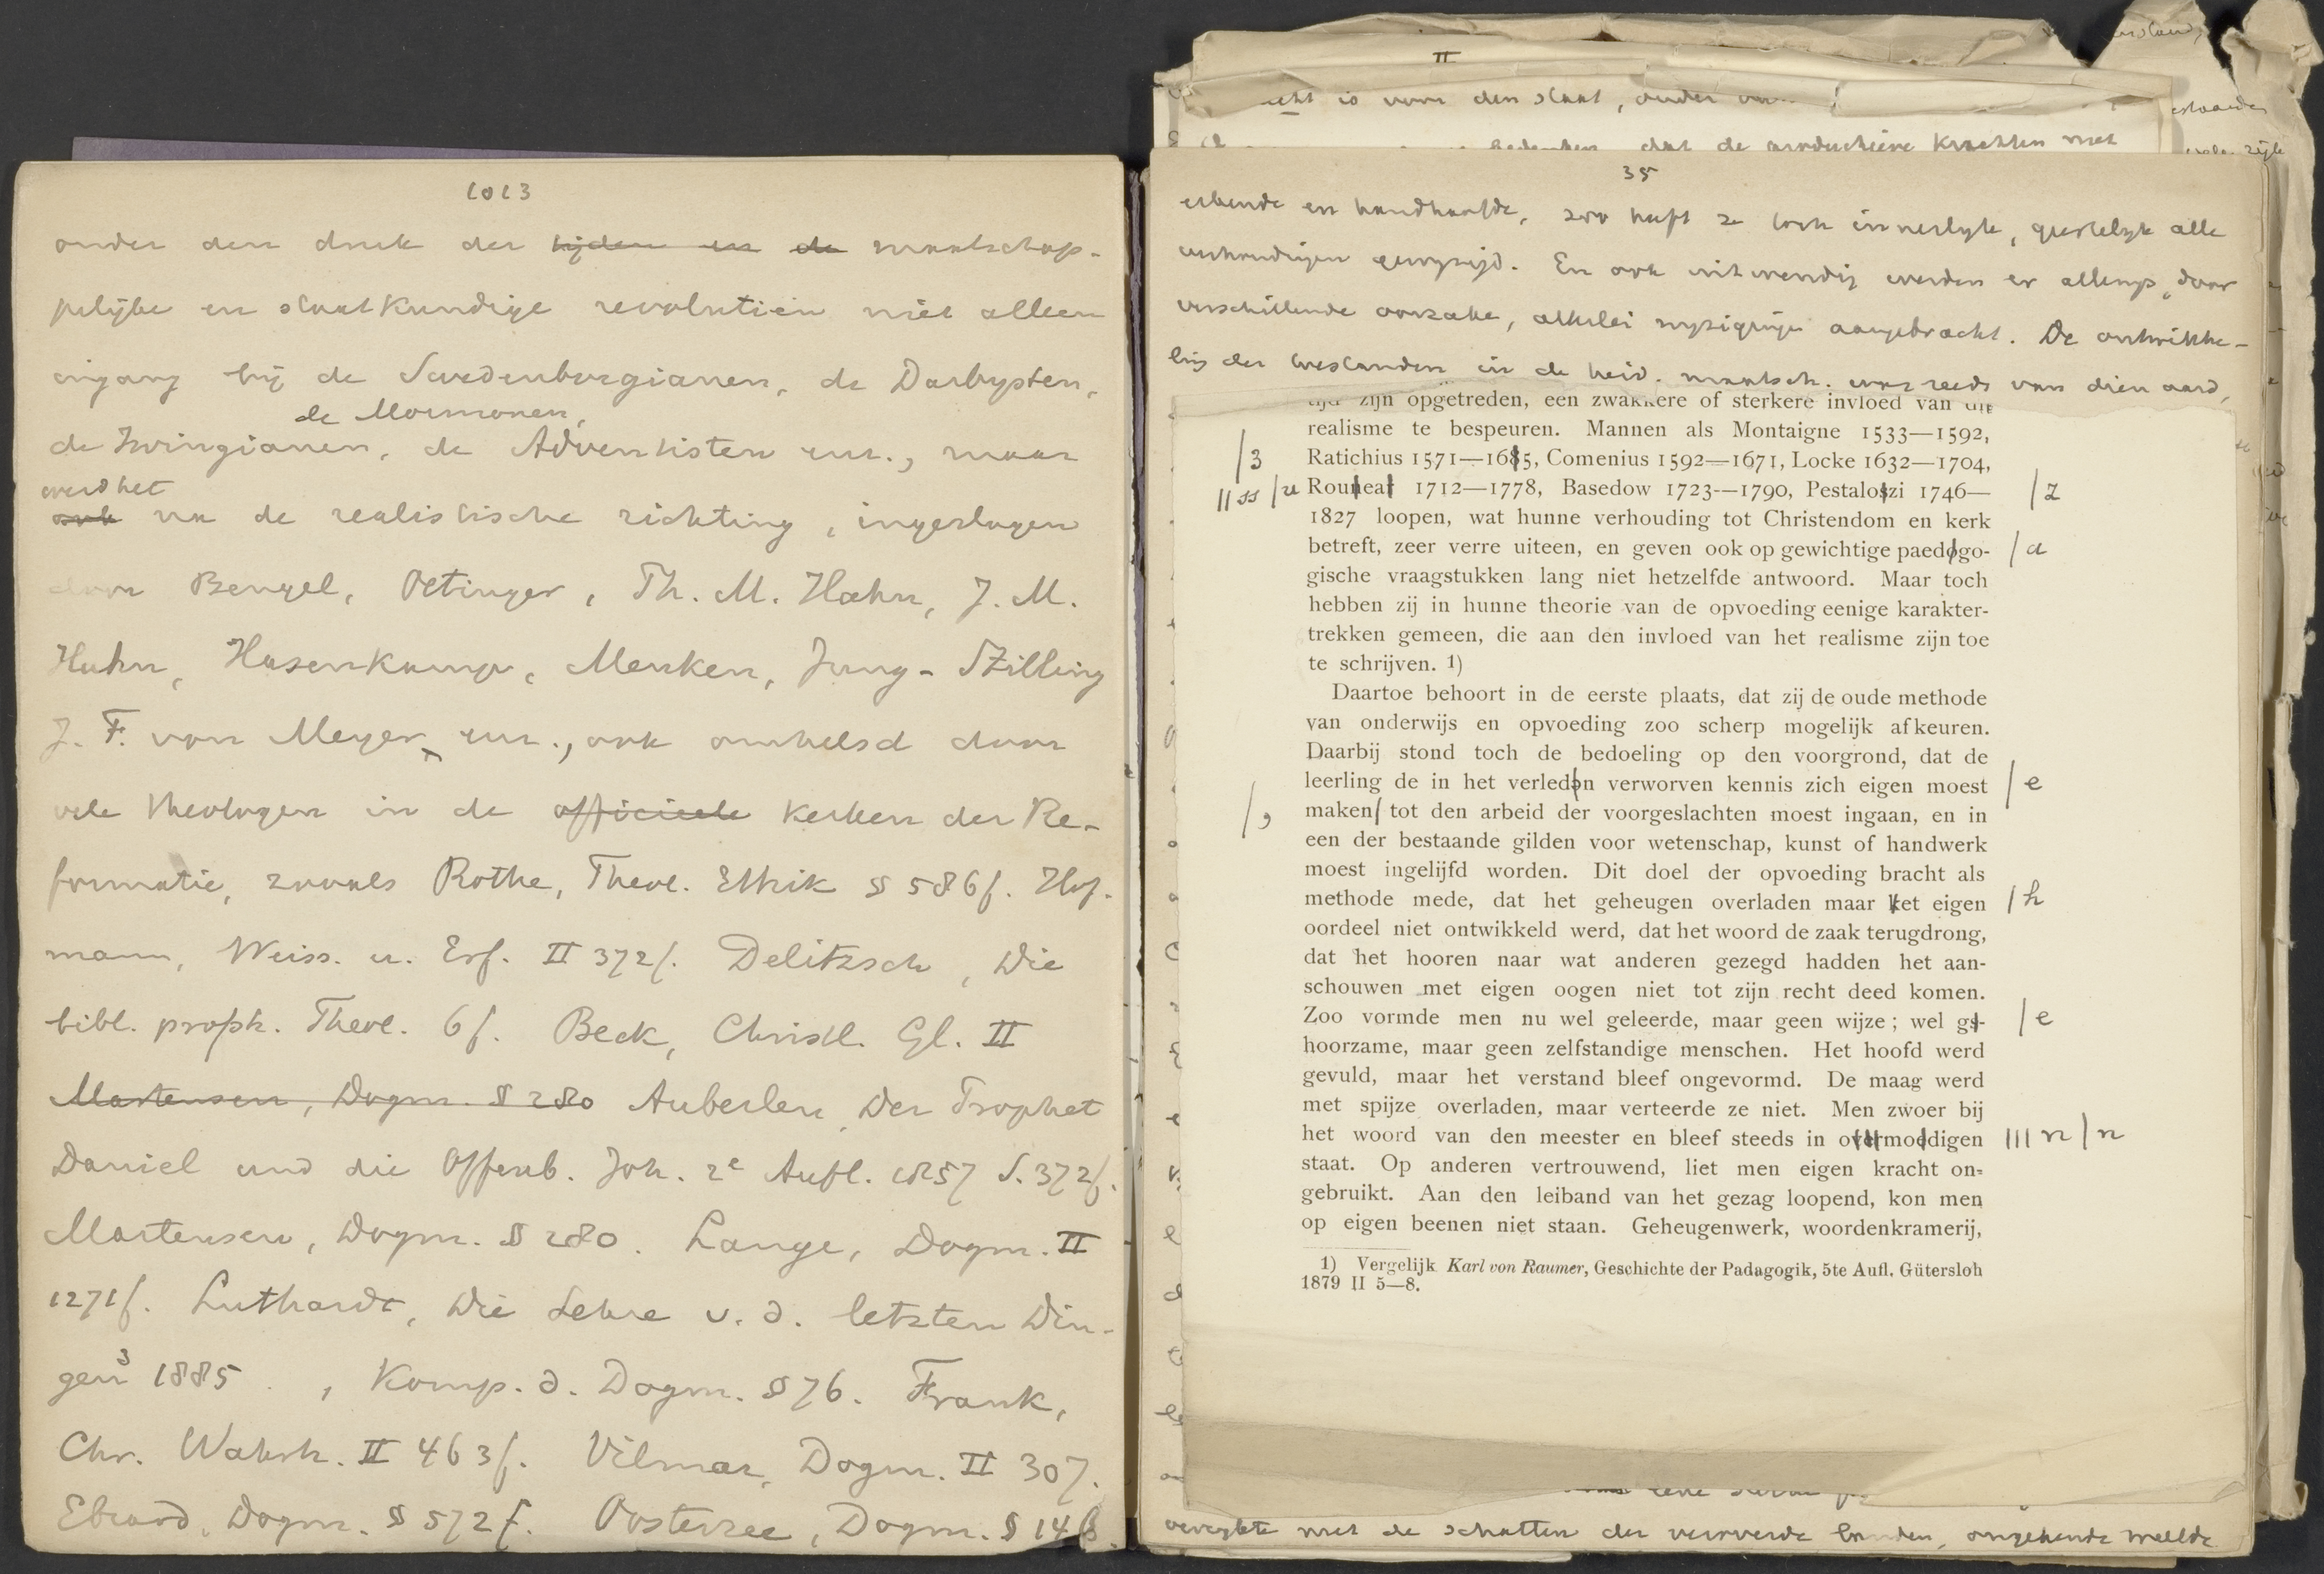 1013
onder den druk der tijden en de maatschap-
pelijke en staatkundige revolutiën niet alleen
ingang bij de Swedenborgianen, de Darbysten,
de Mormonen,
de Irvingianen, de Adventisten enz., maar
werd het
ook na de realistische richting, ingeslagen
door Bengel, Oetinger, Th. M. Hahn, J. M.
Hahn, Hasenkamp, Menken, Jung-Stilling
J. F. von Meyer enz., ook omhelsd door
vele theologen in de officieele kerken der Re-
formatie, zooals Rothe, Theol. Ethik § 586 f. Hof-
mann, Weiss. u. Erf. II 372 f. Delitzsch, Die
bibl. proph. Theol. 6 f. Beck, Christl. Gl. II
Martensen, Dogm. § 280 Auberlen, Der Prophet
Daniel und die Offenb. Joh. 2e Aufl. 1857 S. 372 f.
Martensen, Dogm. § 280. Lange, Dogm. II
1271 f. Luthardt, Die Lehre v. d. letzten Din-
gen 3 1885 , Komp. d. Dogm. § 76. Frank,
Chr. Wahrh. II 463 f. Vilmar, Dogm. II 307.
Ebrard, Dogm. § 572 f. Oosterzee, Dogm. § 146.
II
is voor den staat, onder
bedenken, dat de productieve krachten met
35
erkende en handhaafde, zoo heeft ze toch innerlijk, geestelijk alle
verhoudingen gewijzigd. En ook uitwendig werden er allengs, door
verschillende oorzake, allerlei wijzigingen aangebracht. De ontwikke-
ling der toestanden in de heid. maatsch. was reeds van dien aard,
tijd zijn opgetreden, een zwakkere of sterkere invloed van dit
realisme te bespeuren. Mannen als Montaigne 1533—1592,
/3 Ratichius 1571—1685, Comenius 1592—1671, Locke 1632—1704,
//ss /u Rouheat 1712—1778, Basedow 1723-—1790, Pestaloszi 1746— /z
1827 loopen, wat hunne verhouding tot Christendom en kerk
betreft, zeer verre uiteen, en geven ook op gewichtige paedogo- /a
gische vraagstukken lang niet hetzelfde antwoord. Maar toch
hebben zij in hunne theorie van de opvoeding eenige karakter-
trekken gemeen, die aan den invloed van het realisme zijn toe
te schrijven. 1)
Daartoe behoort in de eerste plaats, dat zij de oude methode
van onderwijs en opvoeding zoo scherp mogelijk afkeuren.
Daarbij stond toch de bedoeling op den voorgrond, dat de
leerling de in het verledon verworven kennis zich eigen moest /e
/, maken tot den arbeid der voorgeslachten moest ingaan, en in
een der bestaande gilden voor wetenschap, kunst of handwerk
moest ingelijfd worden. Dit doel der opvoeding bracht als
methode mede, dat het geheugen overladen maar ket eigen /h
oordeel niet ontwikkeld werd, dat het woord de zaak terugdrong,
dat het hooren naar wat anderen gezegd hadden het aan-
schouwen met eigen oogen niet tot zijn recht deed komen.
Zoo vormde men nu wel geleerde, maar geen wijze; wel gs- /e
hoorzame, maar geen zelfstandige menschen. Het hoofd werd
gevuld, maar het verstand bleef ongevormd. De maag werd
met spijze overladen, maar verteerde ze niet. Men zwoer bij
het woord van den meester en bleef steeds in overmoedigen ///n /n
staat. Op anderen vertrouwend, liet men eigen kracht on-
gebruikt. Aan den leiband van het gezag loopend, kon men
op eigen beenen niet staan. Geheugenwerk, woordenkramerij,
1) Vergelijk Karl von Raumer, Geschichte der Padagogik, 5te Aufl. Gütersloh
1879 II 5—8.
verrijkte met de schatten der veroverde landen, ongekende weelde